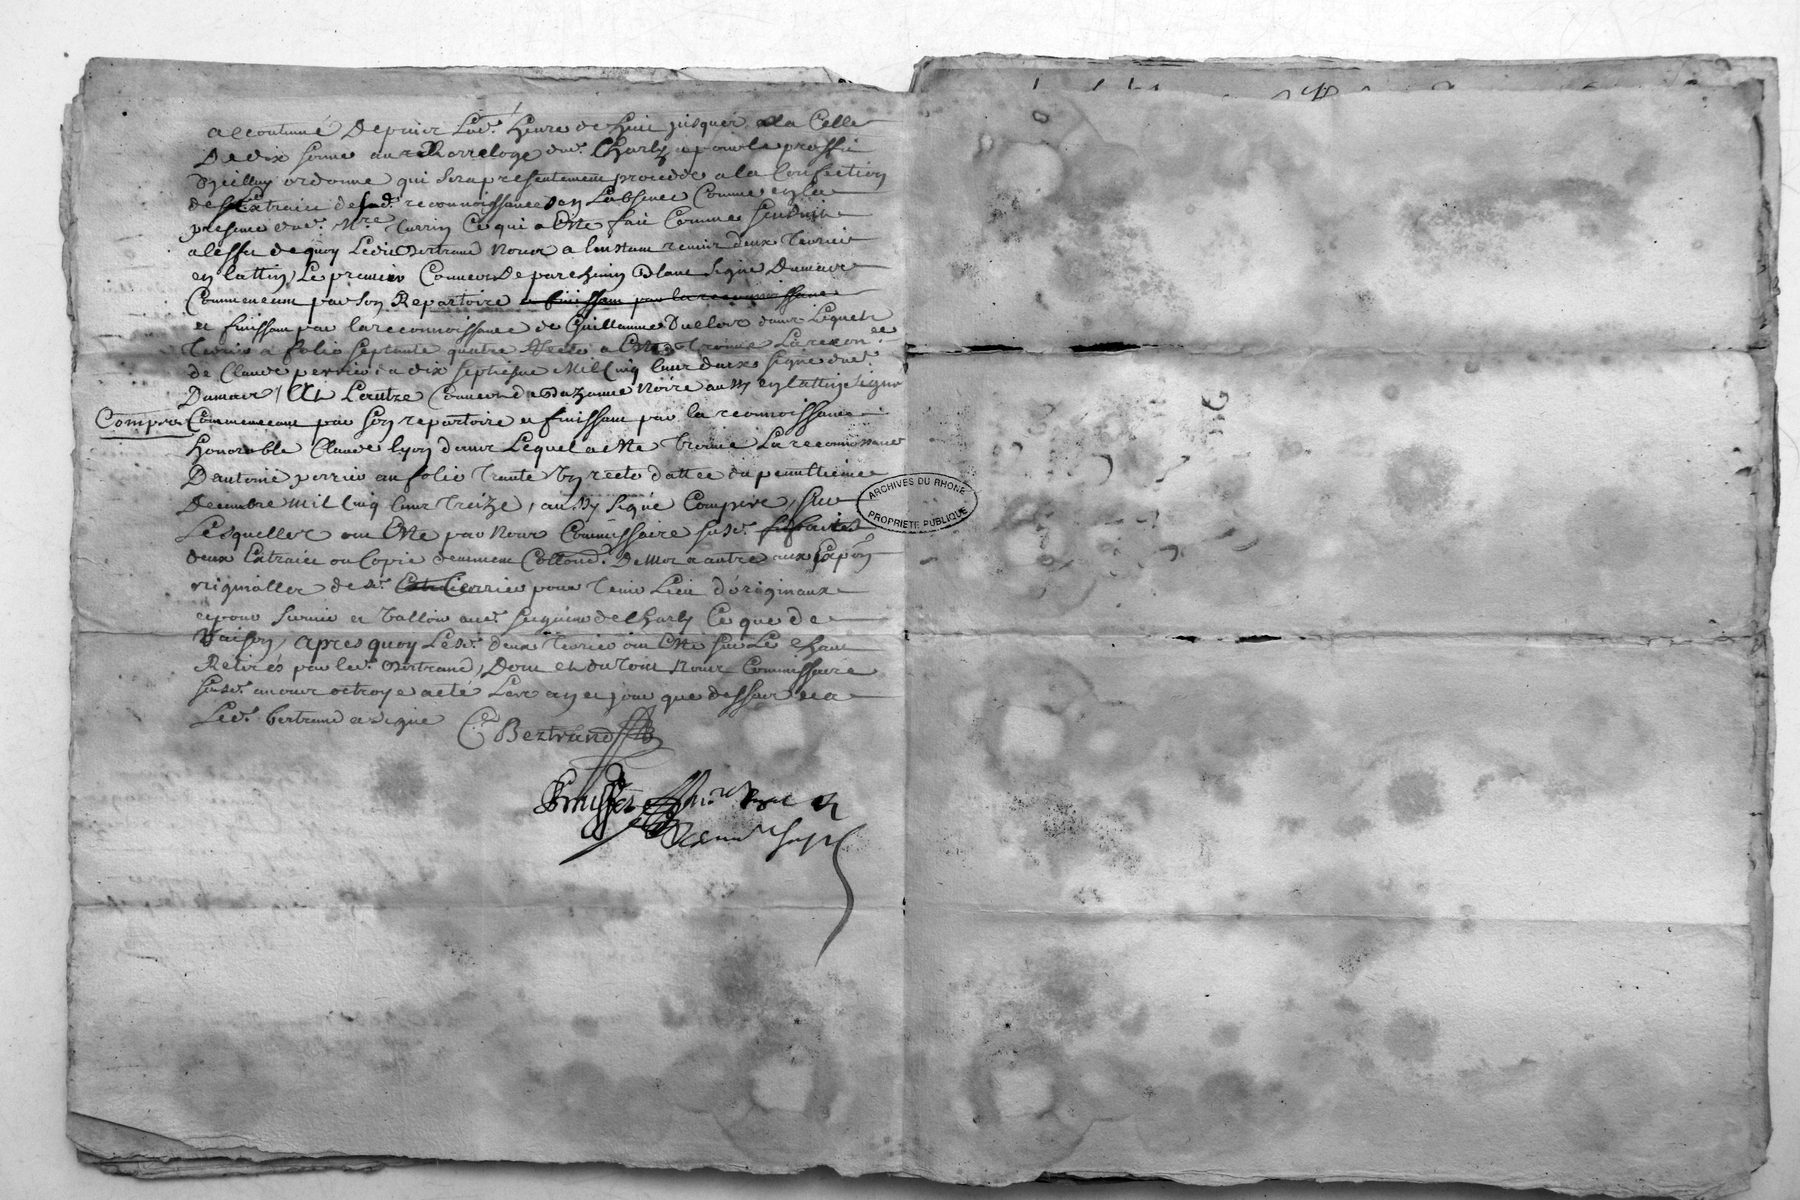 acoutumé depuis lad. heure de huit jusques a la celle
de dix sonné au horreloge dud. Charly a pour le proffit
dicelluy ordonné qui sera presentement procedé a la confection
des extraict desd. reconnoissances en labsence comme en la
presence dud. Mre Turrin ce qui a esté fait comme sensuit
a leffet de quoy ledit Bertrand nous a linstant remis deux terriers
en lattin, le premier couvert de parchemin blanc signé Dumaire
commencant par son repartoire et finissant par la reconnoissance
et finissant par la reconnoissance de Guillaume dans lequel
terrier a folio septante quatre recto a esté trouvé la recon.ce
de Claude perrier du dix septiesme mil cinq cent deux signé dud.
Dumaire, et lautre couvert de bazanne noire aussy en lattin signé
Compere commencant par son repartoire et finissant par la reconnoissance
honorable Claude lyon dans lequel a esté trouvé la reconnoissance
dantoine perrier au folio trente un recto dattée du penultieme
decembre mil cinq cent treize, aussy signé Compere, sur
lesquelles ont esté par nous commissaire susd. faits
deux extraits ou copie deument collond. de mot a autre aux
originalles desd. terrier pour tenir lieu d'originaux
et pour servir et valloir aud. de Charly ce que de
raison, apres quoy lesd. deux terriers ont esté sur le champ
retirés par led. Bertrand, dont et du tout nous commissaire
susd. avons octroyé acte les an et jour que dessus et a
led. bertrand a signé
C. Bertrand
ARCHIVES DU RHONE
PROPRIETE PUBLIQUE